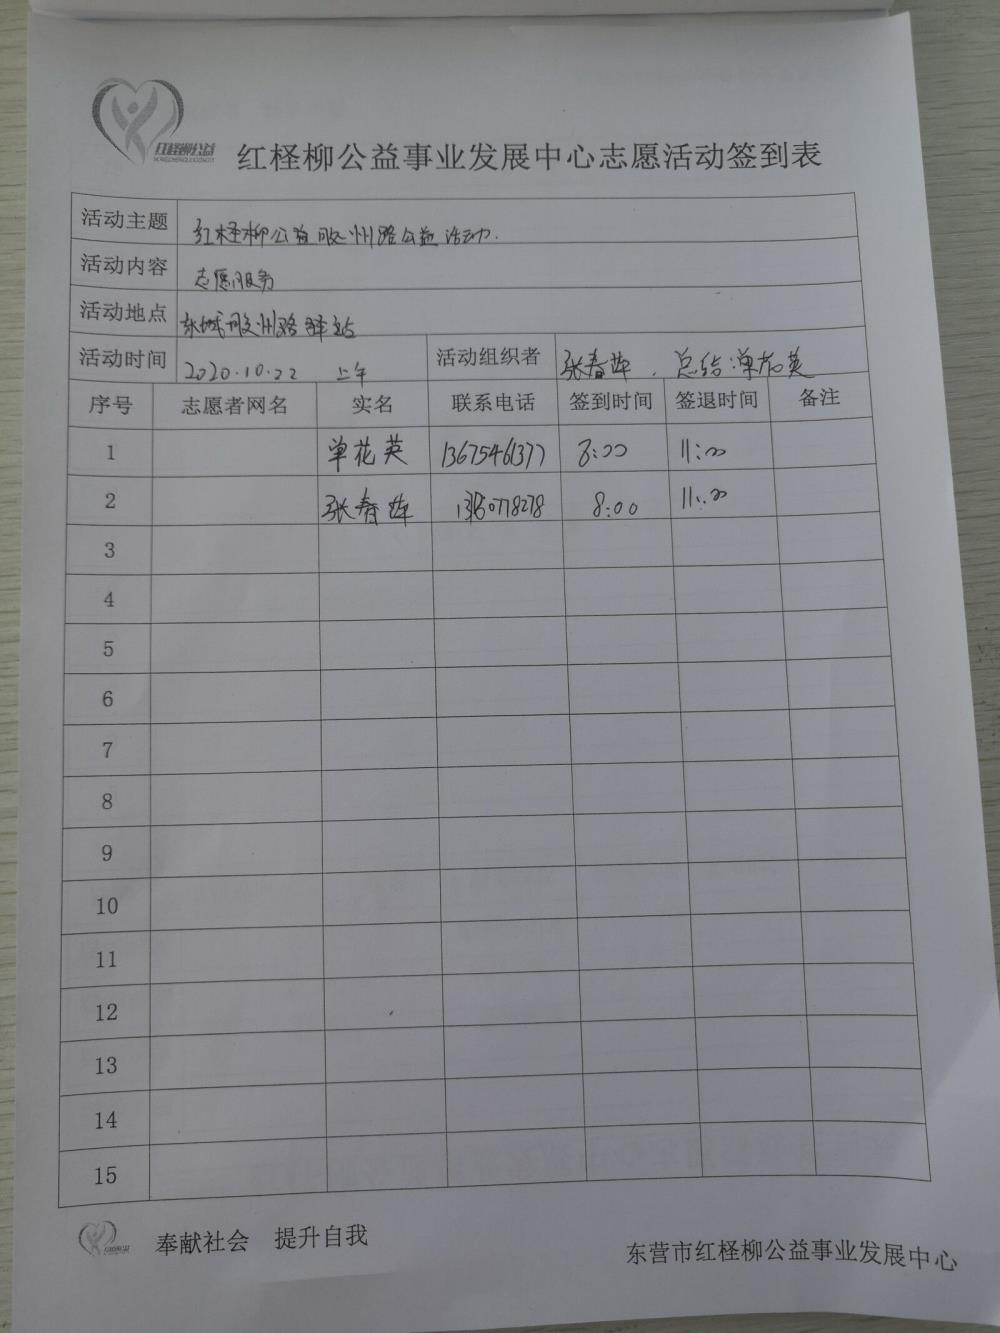 红柽柳公益
红柽柳公益事业发展中心志愿活动签到表
活动主题 红柽柳公益胶州路公益活动.
活动内容 志愿服务
活动地点 东城胶州路驿站
活动时间 2020.10.22 上午 活动组织者 张春萍. 总结:单花英
序号 志愿者网名 实名 联系电话 签到时间 签退时间 备注
1 单花英 13675461377 8:00 11:00
2 张春萍 8:00 11:00
3
4
5
6
7
8
9
10
11
12
13
14
15
奉献社会 提升自我
东营市红柽柳公益事业发展中心